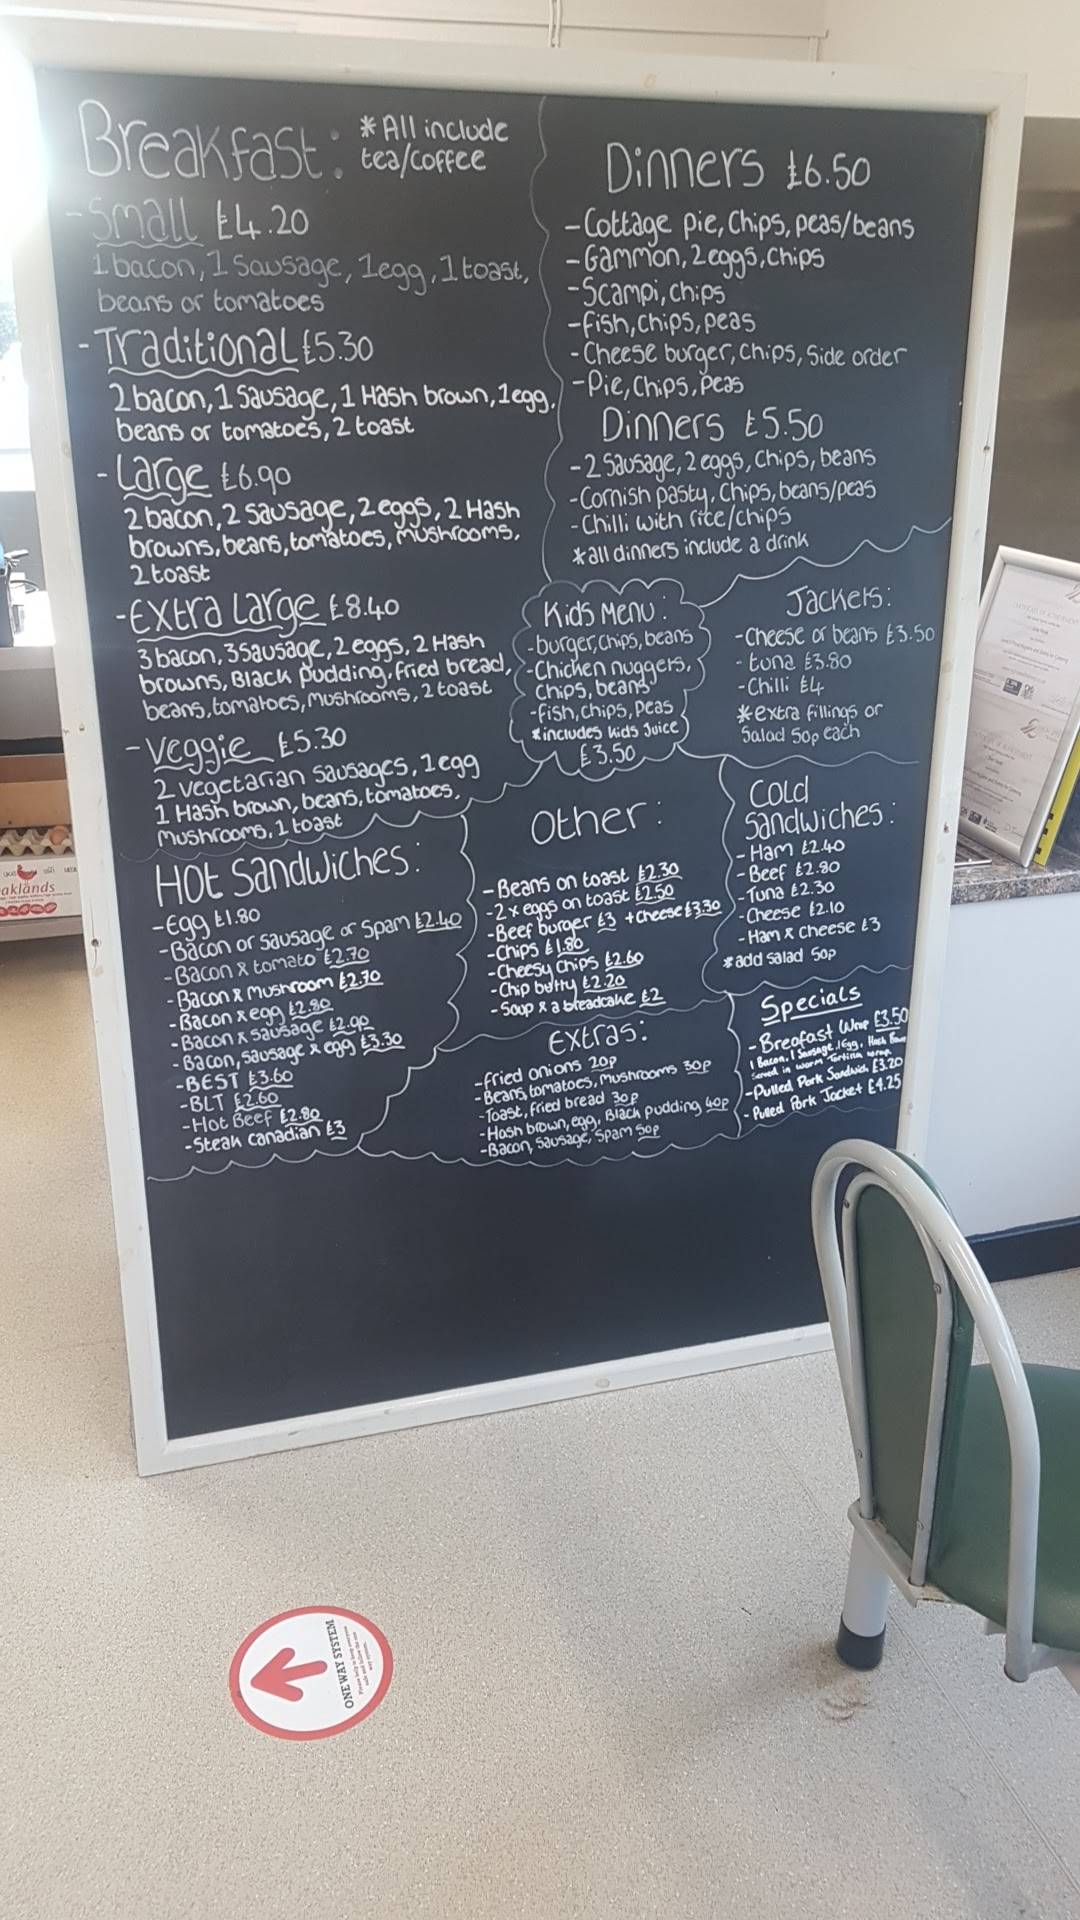 Breakfast:
*All include
tea/coffee
-Small £4.20
1 bacon, 1 Sausage, 1egg, 1 toast,
beans or tomatoes
-Traditional £5.30
2 bacon, 1 Sausage, 1 Hash brown, 1egg,
beans or tomatoes, 2 toast
-Large £6.90
2 bacon, 2 Sausage, 2 eggs, 2 Hash
browns, beans, tomatoes, mushrooms,
2 toast
-Extra Large £8.40
3 bacon, 3 Sausage, 2 eggs, 2 Hash
browns, Black pudding, fried bread,
beans, tomatoes, mushrooms, 2 toast
-Veggie £5.30
2 vegetarian Sausages, 1 egg
1 Hash brown, beans, tomatoes,
mushrooms, 1 toast
Hot Sandwiches:
-Egg £1.80
-Bacon or sausage or Spam £2.40
-Bacon & tomato £2.70
-Bacon & mushroom £2.70
-Bacon & egg £2.80
-Bacon & sausage £2.90
-Bacon, sausage & egg £3.30
-BEST £3.60
-BLT £2.60
-Hot Beef £2.80
-Steak canadian £3
Dinners £6.50
-Cottage pie, Chips, peas/beans
-Gammon, 2 eggs, chips
-Scampi, chips
-fish, chips, peas
-Cheese burger, chips, Side order
-Pie, Chips, Peas
Dinners £5.50
-2 Sausage, 2 eggs, Chips, beans
-Cornish pasty, Chips, beans/peas
-Chilli with rice/chips
*all dinners include a drink
Kids Menu:
-burger, chips, beans
-Chicken nuggets,
Chips, beans
-fish, chips, peas
*includes kids Juice
£3.50
Jackets:
-Cheese or beans £3.50
-tuna £3.80
-Chilli £4
*extra fillings or
Salad 50p each
Other:
-Beans on toast £2.30
-2 x eggs on toast £2.50
-Beef burger £3 +cheese £3.30
-Chips £1.80
-Cheesy chips £2.60
-Chip butty £2.20
-Soup & a breadcake £2
Cold
Sandwiches:
-Ham £2.40
-Beef £2.80
-Tuna £2.30
-Cheese £2.10
-Ham & cheese £3
*add salad 50p
Extras:
-fried onions 20p
-Beans, tomatoes, Mushrooms 30p
-Toast, fried bread 30p
-Hash brown, egg, Black pudding 40p
-Bacon, Sausage, Spam 50p
Specials
-Breafast Wrap £3.50
1 Bacon, 1 Sausage, 1 Egg, Hash Brown
Served in warm Tortilla wrap.
-Pulled Pork Sandwich £3.20
-Pulled Pork Jacket £4.25
aklands
ONE WAY SYSTEM